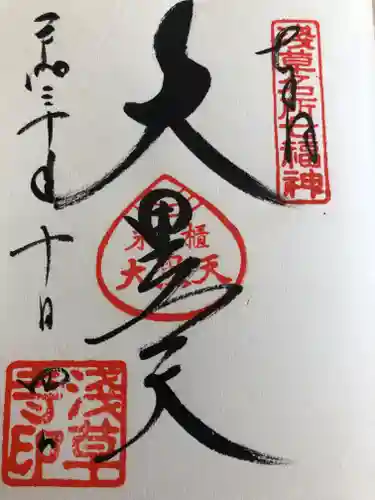 奉拝
浅草名所七福神
大黒天
米櫃
大黒天
平成三十年十月四日
浅草寺印